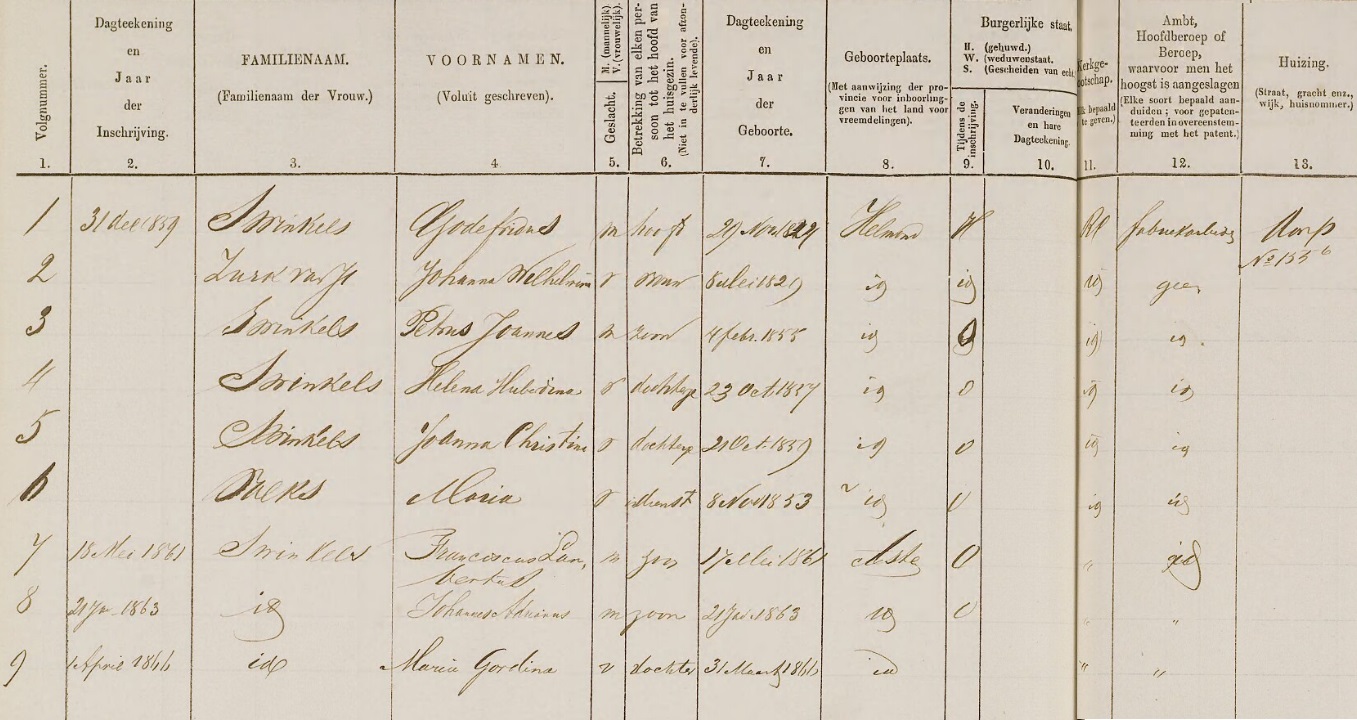 Volgnummer.
1.
Dagteekening
en
Jaar
der
Inschrijving.
2.
FAMILIENAAM.
(Familienaam der Vrouw.)
3.
VOORNAMEN.
(Voluit geschreven).
4
M. (mannelijk).
V. (vrouwelijk).
Geslacht.
5.
Betrekking van elken per-
soon tot het hoofd van
het huisgezin.
(Niet in te vullen voor afzon-
derlijk levende).
6.
Dagteekening
en
Jaar
der
Geboorte.
7.
Geboorteplaats.
(Met aanwijzing der pro-
vincie voor inboorlin-
gen van het land voor
vreemdelingen).
8.
Burgerlijke staat.
H. (gehuwd.)
W. (weduwenstaat.
S. (Gescheiden van echt
Tijdens de
inschrijving.
9.
Veranderingen
en hare
Dagteekening.
10.
Kerkge-
ootschap.
bepaald
te geven.)
11.
Ambt,
Hoofdberoep of
Beroep,
waarvoor men het
hoogst is aangeslagen
(Elke soort bepaald aan-
duiden; voor gepaten-
teerden in overeenstem-
ming met het patent.)
12.
Huizing.
(Straat, gracht enz.,
wijk, huisnommer.)
13.
1 31 dec 1859 Swinkels Godefridus m hooft 29 Nov 1829 Helmond H RC Dorp
No 155
2 Johanna Wilhelmina v vrouw 8 Mei 1829 id id id geen
3 Swinkels Petrus Joannes m zoon 4 febr. 1855 id O id id.
4 Swinkels Helena Huberdina v dochtertje 23 Oct 1857 id O id id
5 Swinkels Joanna Christina v dochtertje 21 Oct. 1859 id O id id
6 Maria v dienst 8 Nov 1853 id O id id
7 18 Mei 1861 Swinkels Franciscus Lam,
bertus m zoon 17 Mei 1861 Aste O " id
8 21 Jan 1863 id Johannes Adrianus m zoon 21 Jan. 1863 id O " "
9 1 April 1866 id Maria Gordina v dochter 31 Maart 1866 id " "